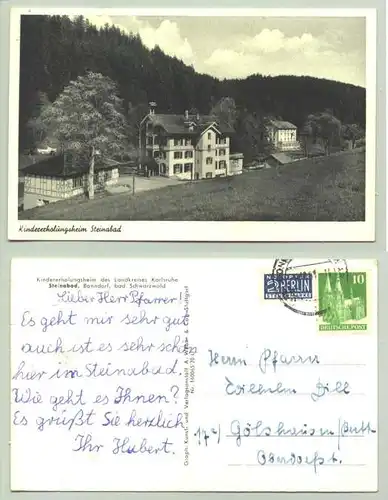 Kindererholungsheim Steinabad
Kindererholungsheim des Landkreises Karlsruhe
Steinabad, Bonndorf, bad. Schwarzwald
Lieber Herr Pfarrer!
Es geht mir sehr gut
auch ist es sehr schön
hier im Steinabad.
Wie geht es Ihnen?
Es grüßt Sie herzlich
Ihr Hubert.
Graph. Kunst- und Verlagsanstalt
NOTOPFER
2 BERLIN
STEUERMARKE
10
DEUTSCHE POST
Herrn Pfarrer
Wilhelm Dill
17a) Gölshausen/Brett.
Oberdorfst.